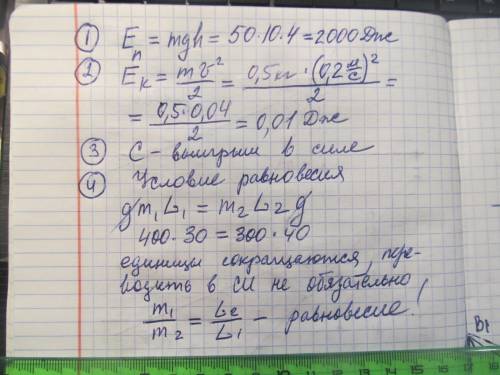 ① Eп = mgh = 50·10·4 = 2000 Дж
② Eк = mv²/2 = 0,5кг·(0,2 м/с)²/2 =
= 0,5·0,04/2 = 0,01 Дж
③ С – выигрыш в силе
④ Условие равновесия
g m₁ L₁ = m₂ L₂ g
400·30 = 300·40
единицы сокращаются, пере-
водить в СИ не обязательно!
m₁/m₂ = L₂/L₁ – равновесие
В1
0 1 2 3 4 5 6 7 8 9 10 11 12 13 14 15 16